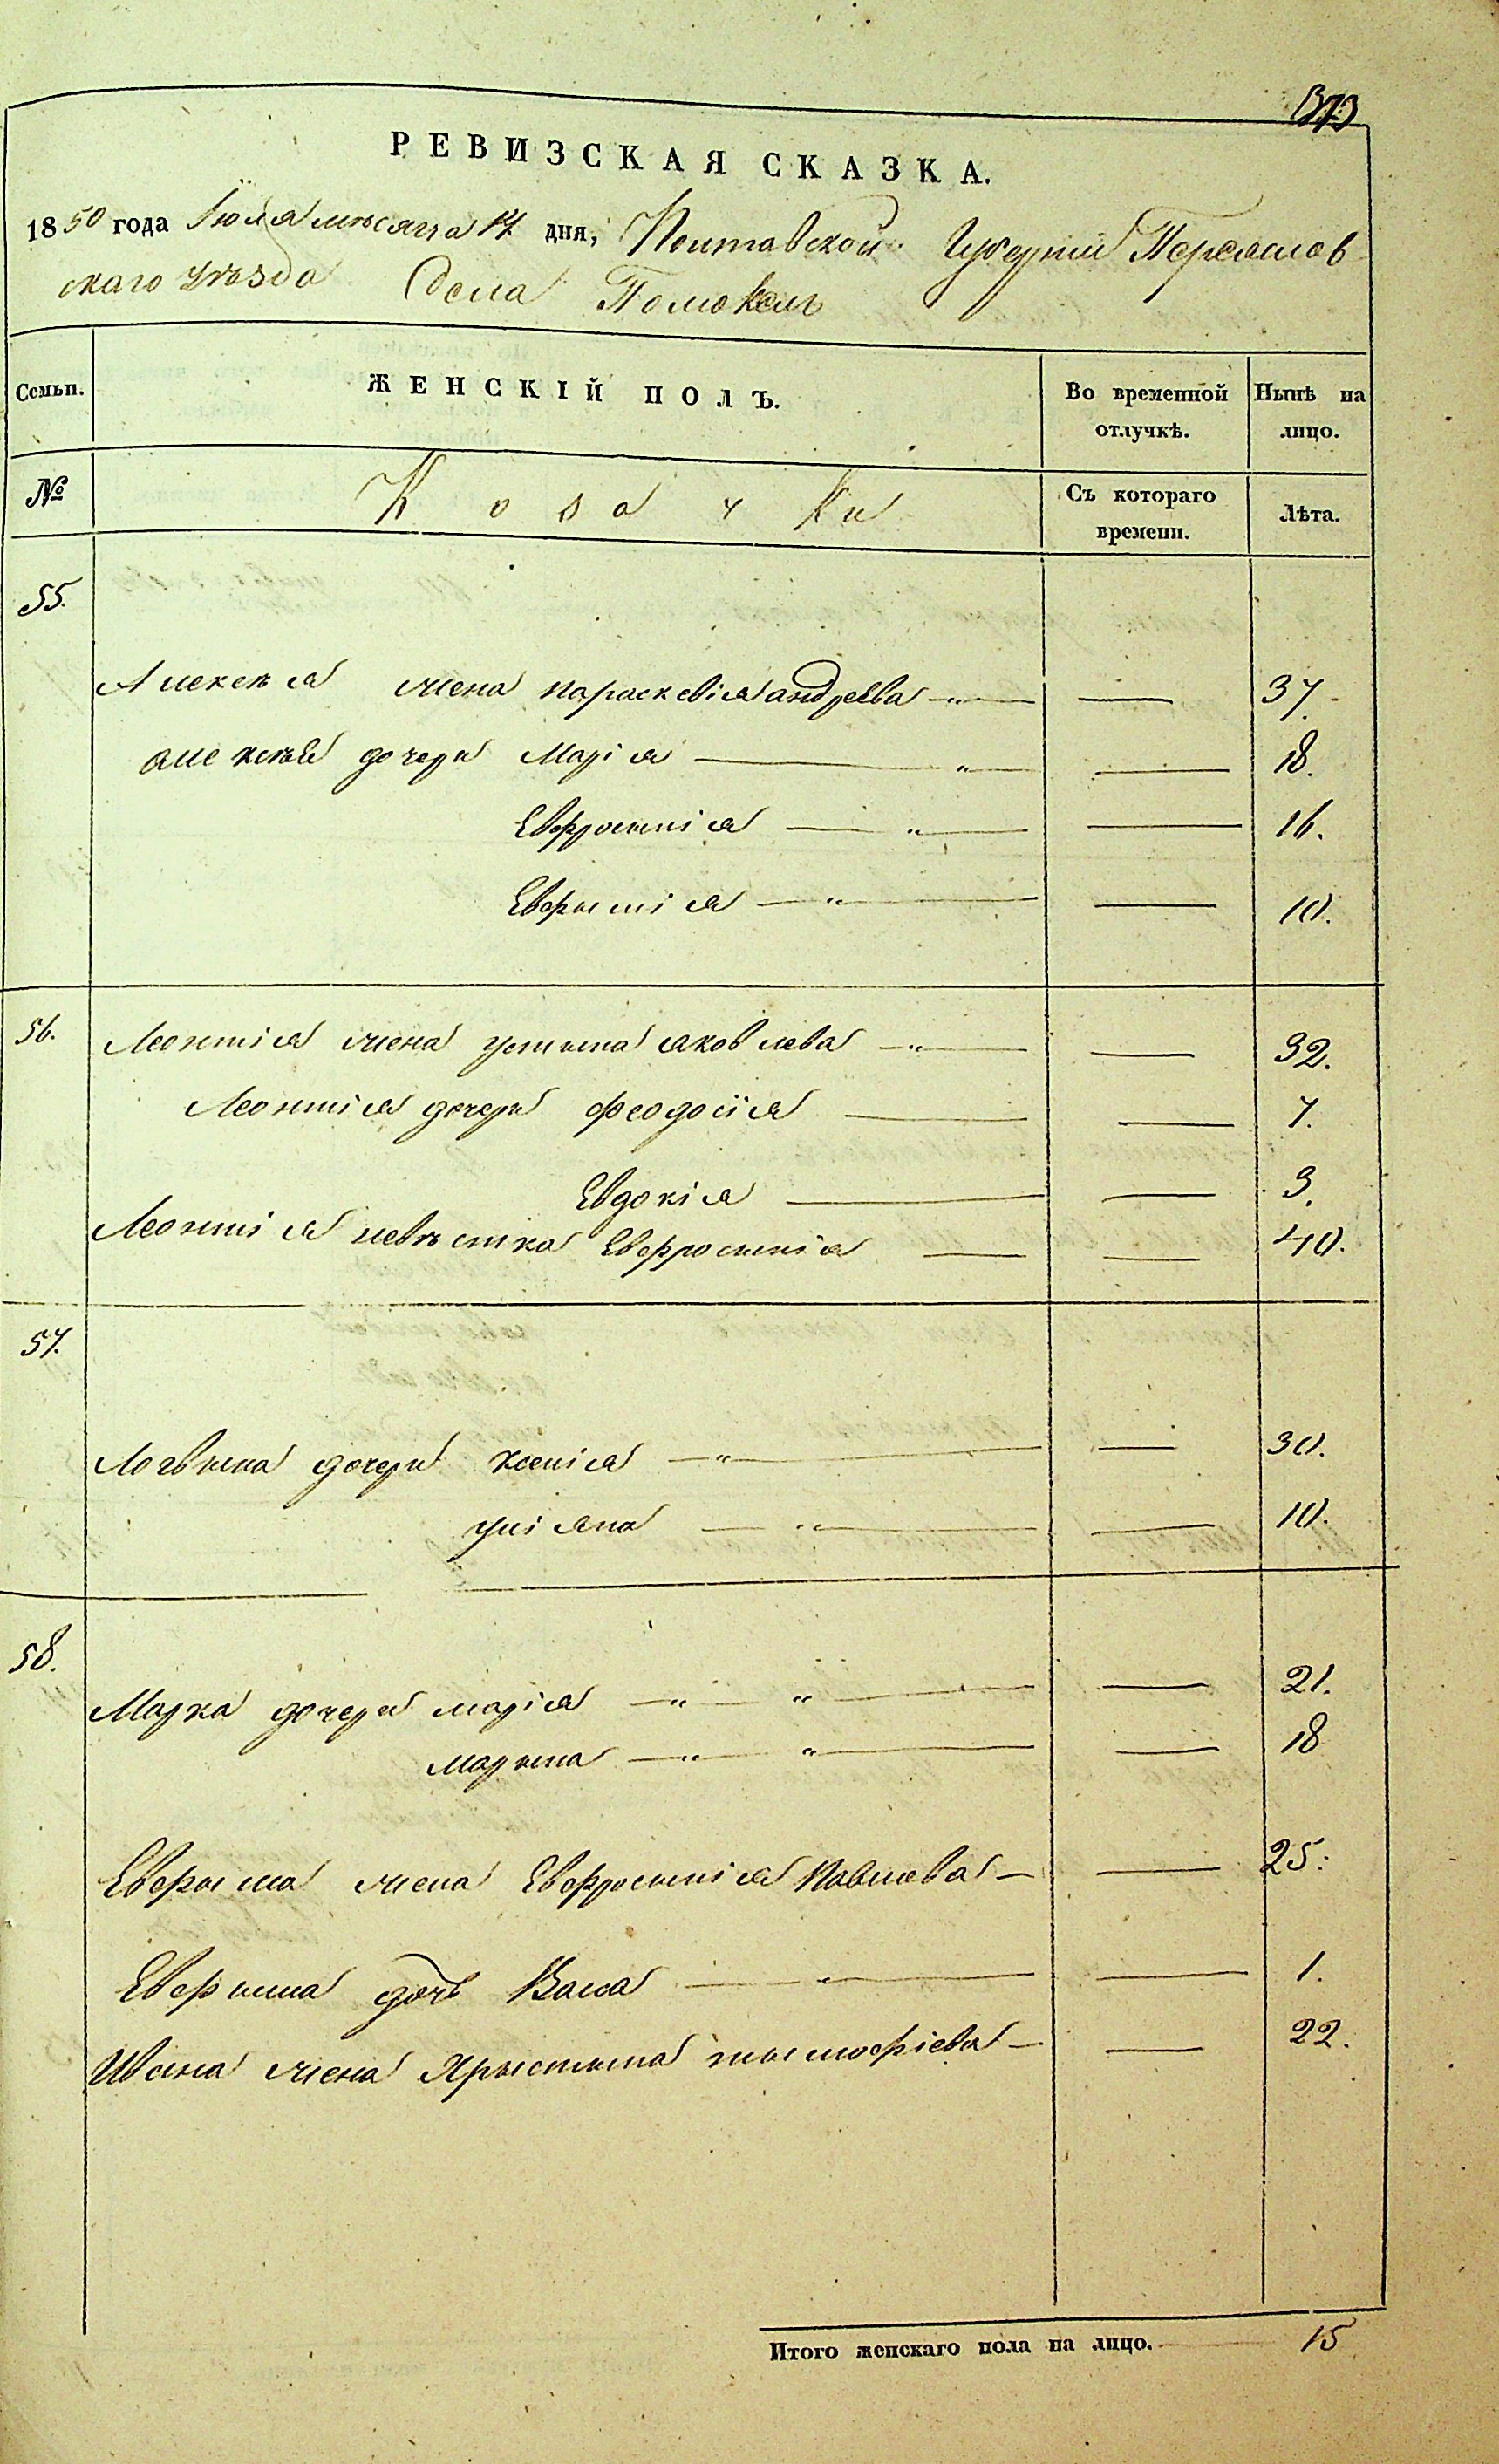 373
РЕВИЗСКАЯ СКАЗКА.
1850 года Іюля мѣсяца 17 дня, Полтавской Губерніи Переяслов
скаго уѣзда Села Помоклъ
Семьи. ЖЕНСКІЙ ПОЛЪ. Во временной отлучкѣ. Нынѣ на лицо.
№ Козачки Съ котораго времени. Лѣта.
55.
Алексѣя жена параскевія андреева —„— — 37.
алексѣя дочери Марія —„— — 18.
Евфросинія —„— — 16.
Евфимія —„— — 10.
56. Леонтія жена устина яковлева —„— — 32.
Леонтія дочери феодосія — — 7.
Евдокія — — 3.
Леонтія невѣстка Евфросинія — — 40.
57.
Логвина дочери ксенія —„— — 30.
уліяна —„— — 10.
58.
Марка дочери марія —„— „— — 21.
марина —„— „— — 18
Ефима жена Евфросинія Павлева — — 25.
Ефима дочь Васа —„— — 1.
Ивана жена Христина тимофіева — — 22.
Итого женскаго пола на лицо. — 15